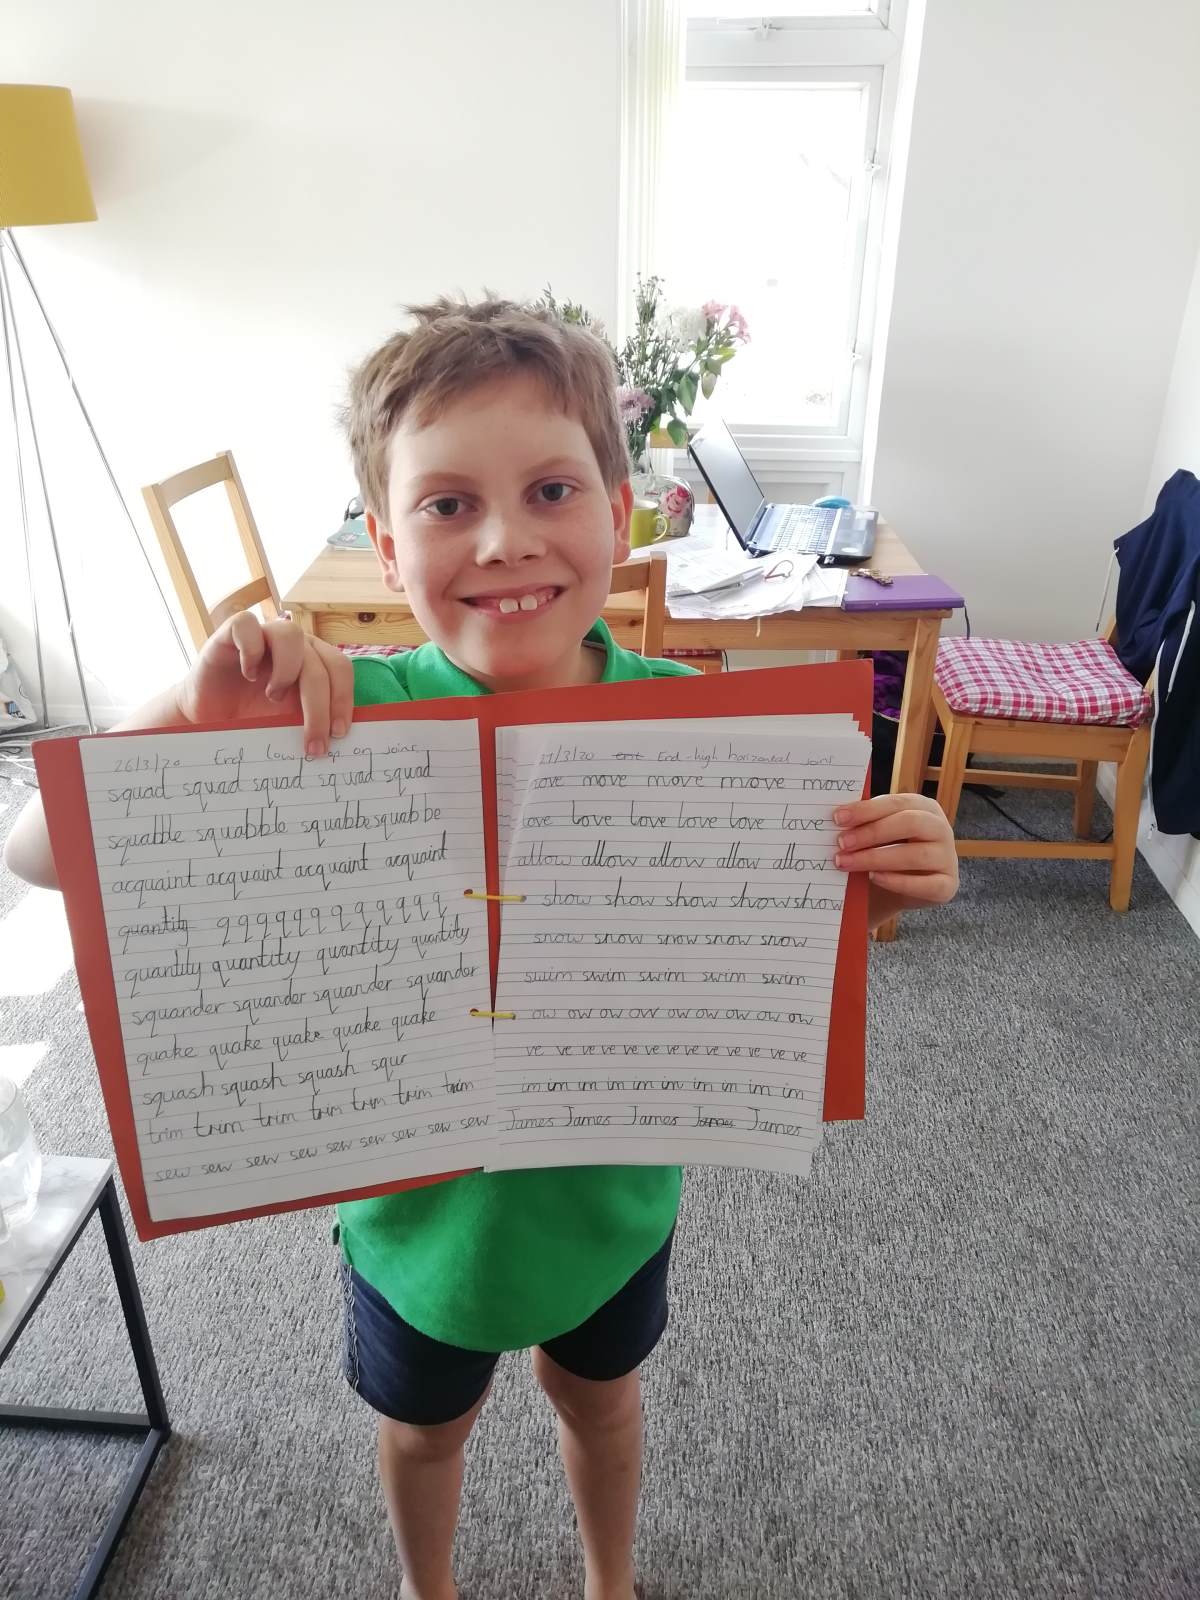 26/3/20 End low on joins
squad squad squad squad squad
squabble squabble squabbe squabbe
acquaint acquaint acquaint acquaint
quantity q q q q q q q q q q q q
quantity quantity quantity quantity
squander squander squander squander
quake quake quake quake quake
squash squash squash squr
trim trim trim trim trim trim trim
sew sew sew sew sew sew sew sew
27/3/20 End high horizontal joins
move move move move move
love love love love love love
allow allow allow allow allow
show show show show show
snow snow snow snow snow
swim swim swim swim swim
ow ow ow ow ow ow ow ow ow
ve ve ve ve ve ve ve ve ve ve ve ve ve
im im im im im im im im im im
James James James James James